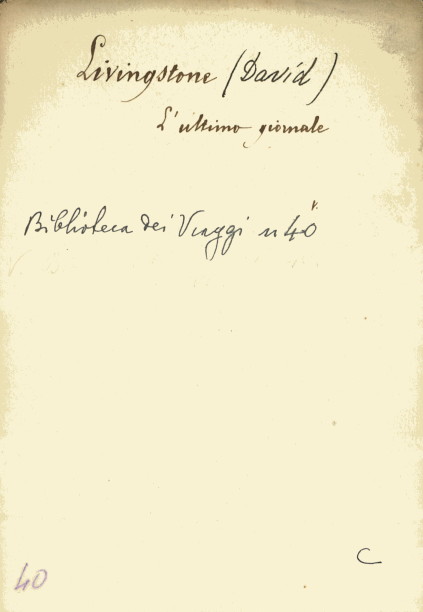 Livingstone (David)
L'ultimo giornale
Biblioteca dei Viaggi n 40
C
40